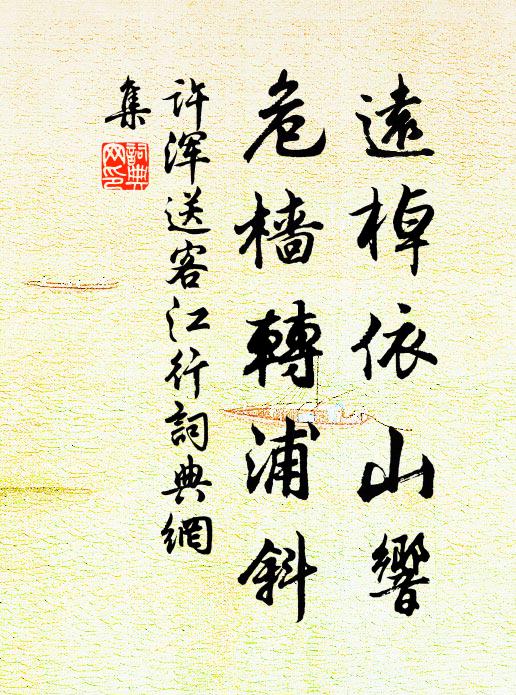 遠棹依山響
危檣轉浦斜
許渾送客江行詞典網
集
詞典
网印